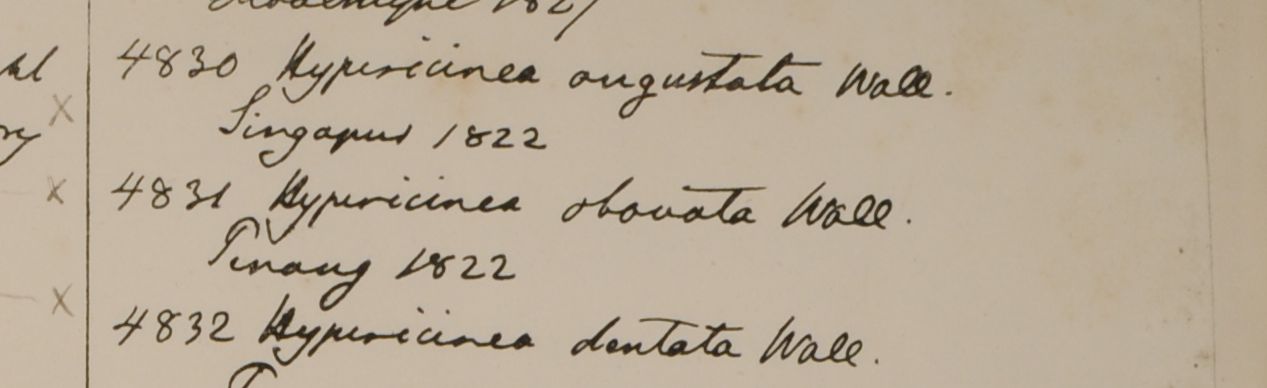 1827
4830 Hypericinea angustata Wall.
x
Singapur 1822
x 4831 Hypericinea obovata Wall.
Pinang 1822
x
4832 Hypericinea dentata Wall.